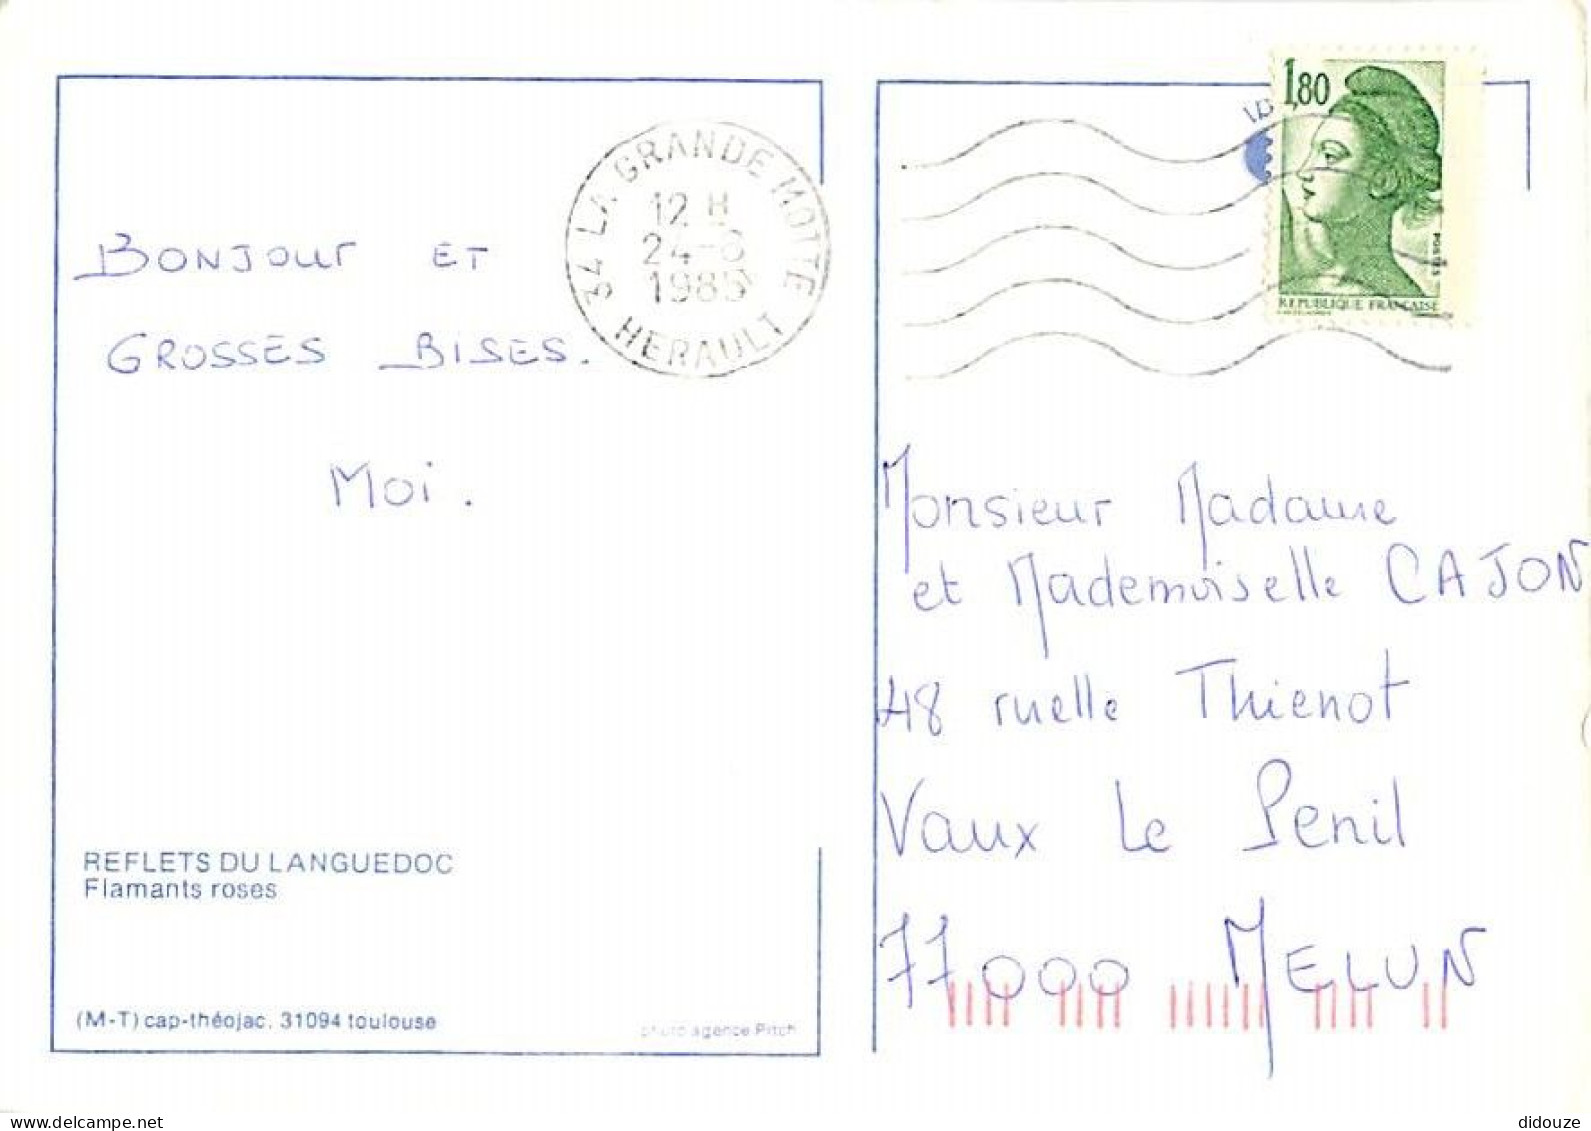 BONJOUR ET
GROSSES BISES.
MOI.
34 LA GRANDE MOTTE
12 H
24-8
1985
HERAULT
1,80
POSTES
REPUBLIQUE FRANÇAISE
Monsieur Madame
et Mademoiselle CAJON
48 ruelle Thienot
Vaux Le Penil
77000 MELUN
REFLETS DU LANGUEDOC
Flamants roses
(M-T) cap-théojac. 31094 toulouse
photo agence Pitch
www.delcampe.net
didouze